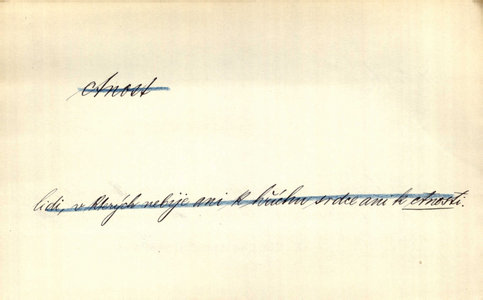 ctnost
lidi, v kterých nebije ani k hříchu srdce ani k ctnosti.